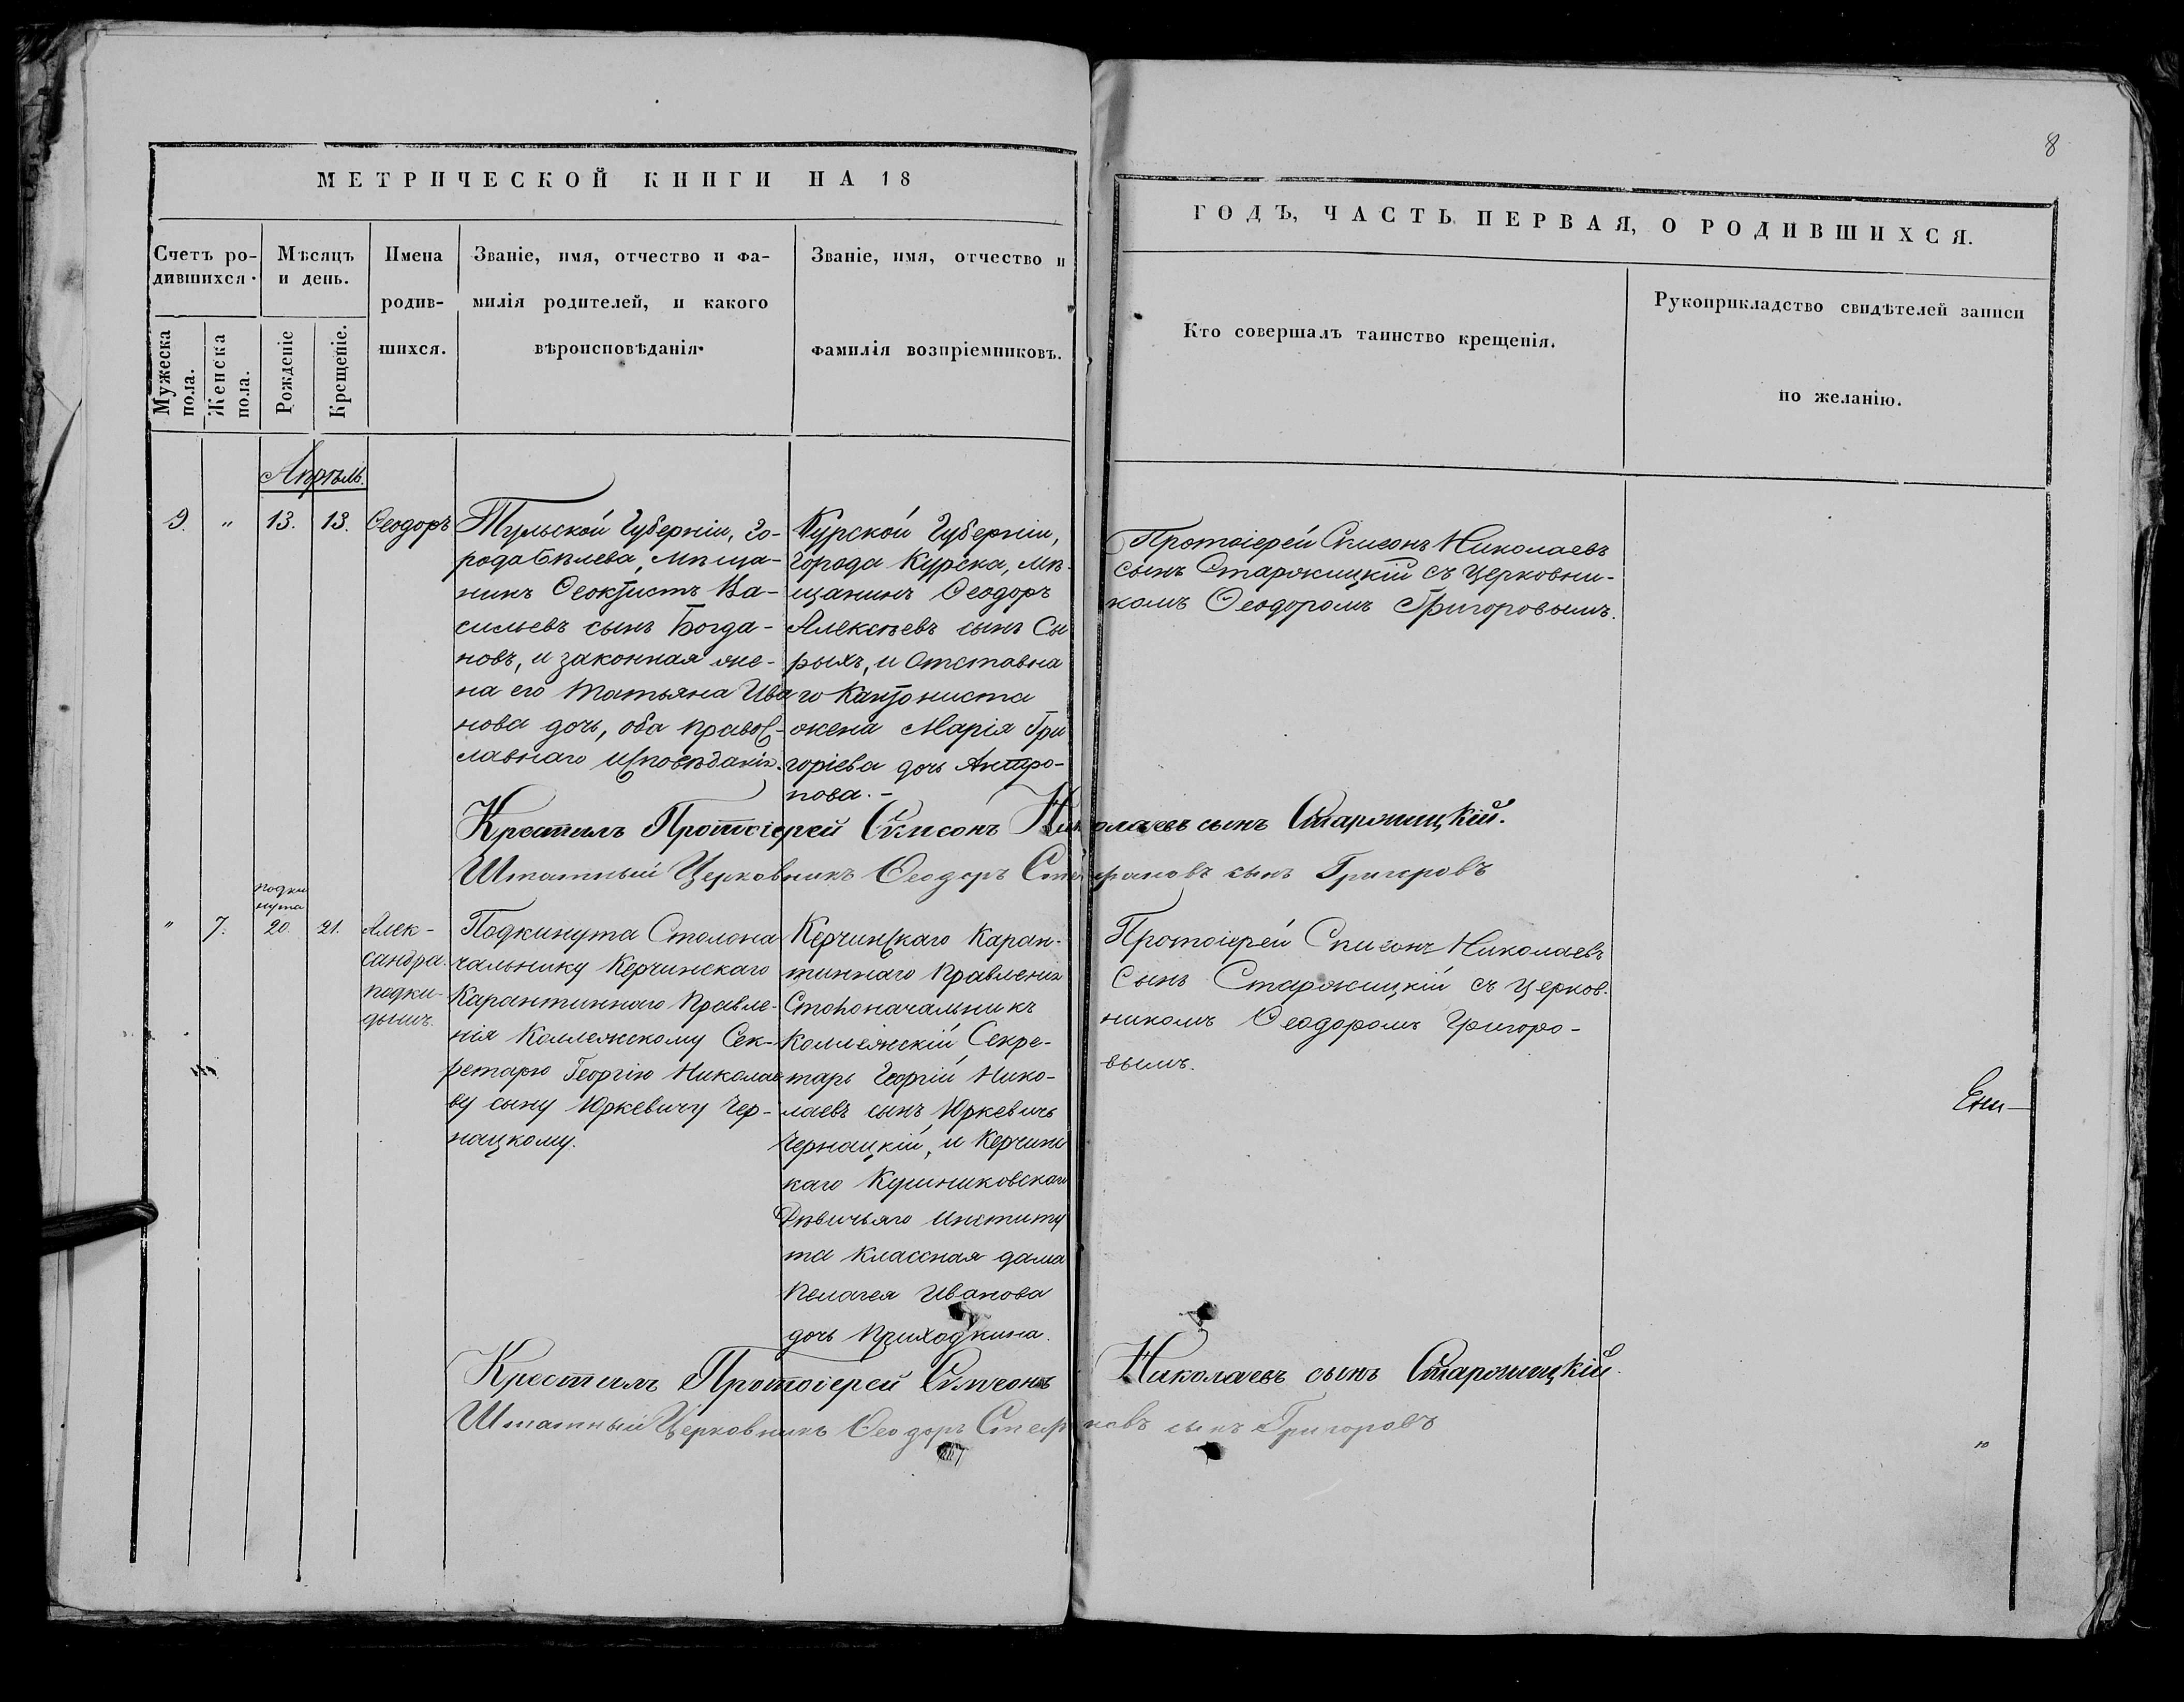 8
МЕТРИЧЕСКОЙ КНИГИ НА 18
ГОДЪ, ЧАСТЬ ПЕРВАЯ, О РОДИВШИХСЯ.
Счетъ ро-
дившихся.
Мужеска
пола.
Женска
пола.
Мѣсяцъ
и день.
Рожденіе
Крещеніе.
Имена
родив-
шихся.
Званіе, имя, отчество и фа-
милія родителей, и какого
вѣроисповѣданія.
Званіе, имя, отчество и
фамилія воспріемниковъ.
Кто совершалъ таинство крещенія.
Рукоприкладство свидѣтелей записи
по желанію.
Апрѣль.
9.
"
13.
13.
Ѳеодоръ
Тульской Губерніи, го-
рода Бѣлева, Мѣща-
нинъ Ѳеоктистъ Ва-
сильевъ сынъ Богда-
новъ, и законная же-
на его Татьяна Ива
нова дочь, оба Правос-
лавнаго исповѣданія.
Курской Губерніи,
города Курска, Мѣ-
щанинъ Ѳеодоръ
Алексѣевъ сынъ Сы
рыхъ, и Отставна
го Кантониста
жена Марія Гри
горіева дочь Антро-
пова.-
Протоіерей Симеонъ Николаевъ
сынъ Старжицкій съ Церковни-
комъ Ѳеодоромъ Григоровымъ.
Крестилъ Протоіерей Симеонъ Николаевъ сынъ Старжицкій.
Штатный Церковникъ Ѳеодоръ Стефановъ сынъ Григоровъ
"
7.
подки
нута
20.
21.
Алек-
сандра.
подки-
дышъ.
Подкинута Столона
чальнику Керчинскаго
Карантиннаго Правле-
нія Коллежскому Сек-
ретарю Георгію Николае
ву сыну Юркевичу Чер-
нацкому.
Керчинскаго Каран-
тиннаго Правленія
Столоначальникъ
Коллежскій Секре-
тарь Георгій Нико-
лаевъ сынъ Юркевичъ
Чернацкій, и Керчинс
каго Кушниковскаго
Дѣвичьяго Институ
та классная дама
Пелагея Иванова
дочь Приходкина.
Протоіерей Симеонъ Николаевъ
Сынъ Старжицкій съ Церков.
никомъ Ѳеодоромъ Григоро-
вымъ.
Ени-
Крестилъ Протоіерей Симеонъ Николаевъ сынъ Старжицкій.
Штатный Церковникъ Ѳеодоръ Стефановъ сынъ Григоровъ